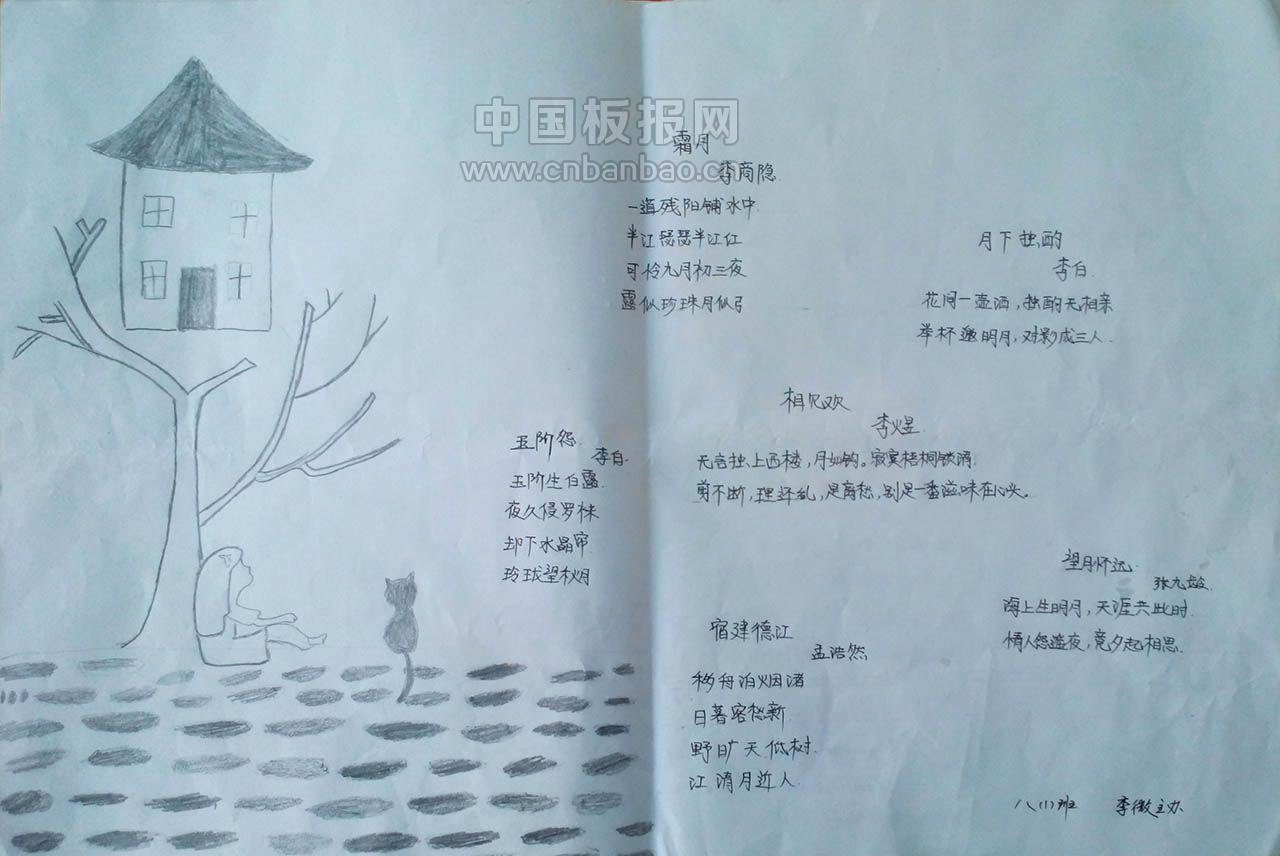 中国板报网
www.cnbanbao.cn
霜月
李商隐
一道残阳铺水中
半江瑟瑟半江红
可怜九月初三夜
露似珍珠月似弓
月下独酌
李白
花间一壶酒，独酌无相亲
举杯邀明月，对影成三人
相见欢
李煜
无言独上西楼，月如钩。寂寞梧桐锁清
剪不断，理还乱，是离愁，别是一番滋味在心头。
玉阶怨
李白
玉阶生白露
夜久侵罗袜
却下水晶帘
玲珑望秋月
望月怀远
张九龄
海上生明月，天涯共此时
情人怨遥夜，竟夕起相思
宿建德江
孟浩然
移舟泊烟渚
日暮客愁新
野旷天低树
江清月近人
八(1)班 李微主办